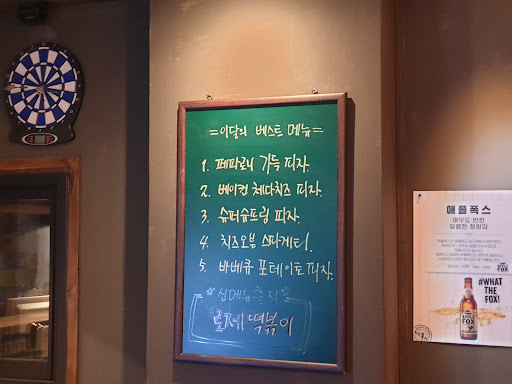 =이달의 베스트 메뉴=
1. 페파로니 가득 피자.
2. 베이컨 체다치즈 피자.
3. 슈퍼슈프림 피자.
4. 치즈오븐 스파게티.
5. 바베큐 포테이토 피자.
☆신메뉴 출시☆
로제 떡볶이
애플폭스
여우도 반한
달콤한 청량감
#WHAT
THE
FOX!
APPLE
FOX